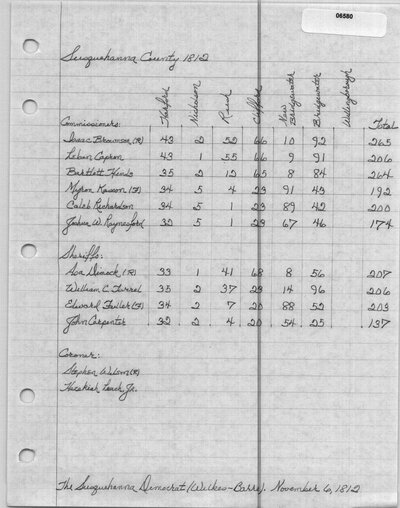 06580
Susquehanna County 1812
Harford Nicholson Rush Clifford New Bridgewater Bridgewater Willingborough
Commissioners: Total
Isaac Brownson (R) 43 2 52 66 10 92 265
Lebuin Capron 43 1 55 66 9 91 206
Bartlett Hinds 35 2 12 65 8 84 264
Myron Kasson (F) 34 5 4 23 91 43 192
Caleb Richardson 34 5 1 23 89 42 200
Joshua W. Raynesford 32 5 1 23 67 46 174
Sheriffs:
Asa Dimock (R) 33 1 41 68 8 56 207
William C. Turrel 35 2 37 23 14 96 206
Edward Fuller (F) 34 2 7 20 88 52 203
John Carpenter 32 2 4 20 54 25 137
Coroner:
Stephen Wilson (R)
Hezekiah Leach Jr.
The Susquehanna Democrat (Wilkes-Barre). November 6, 1812